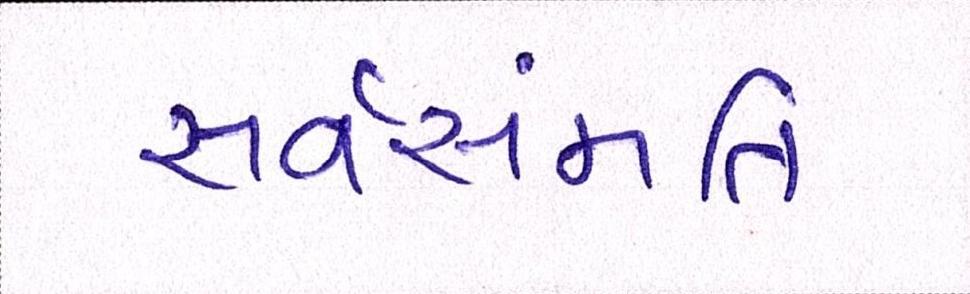 સર્વસંમતિ